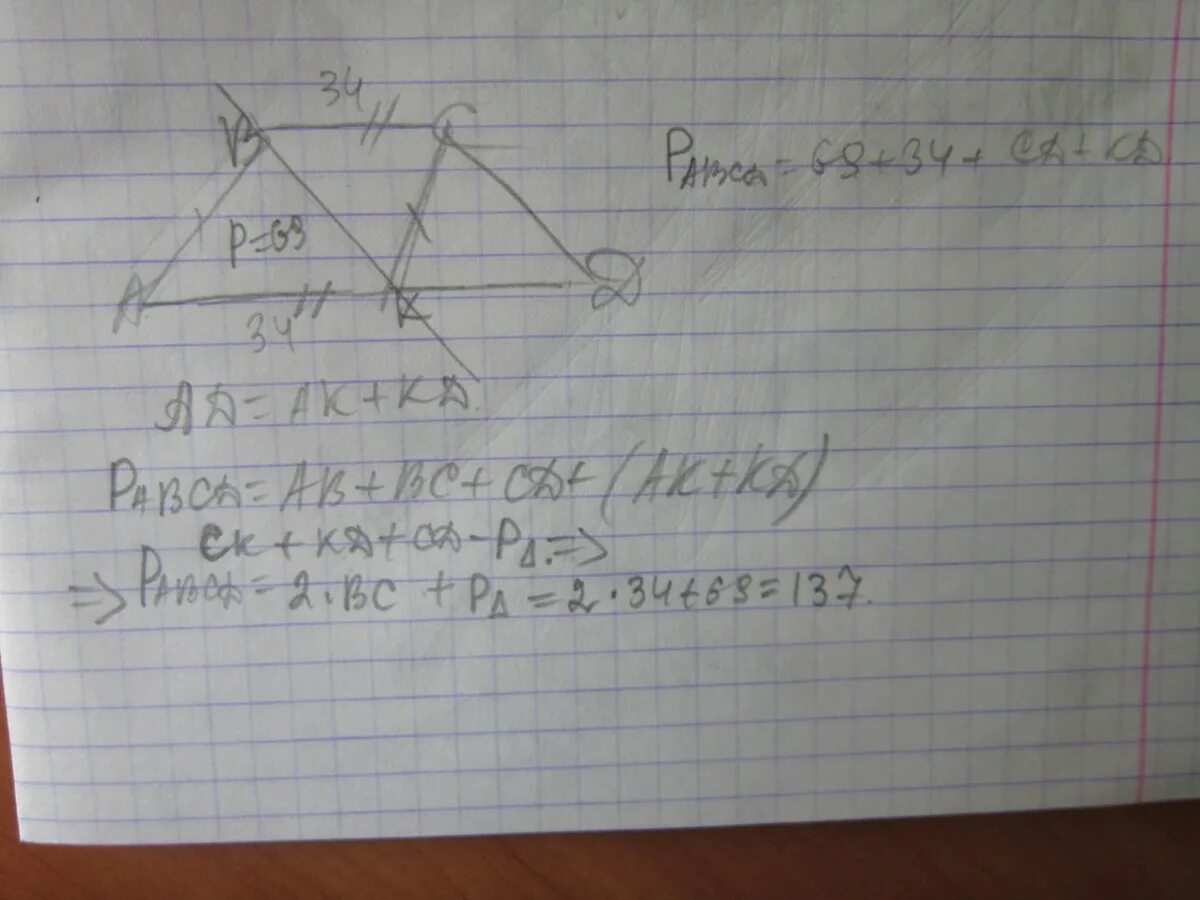 34
B C
P=69
A K D
34
P ABCD = 69 + 34 + CD + KD
AD = AK + KD.
P ABCD = AB + BC + CD + (AK + KD)
CK + KD + CD - P Δ. =>
=> P ABCD = 2 · BC + P Δ = 2 · 34 + 69 = 137.